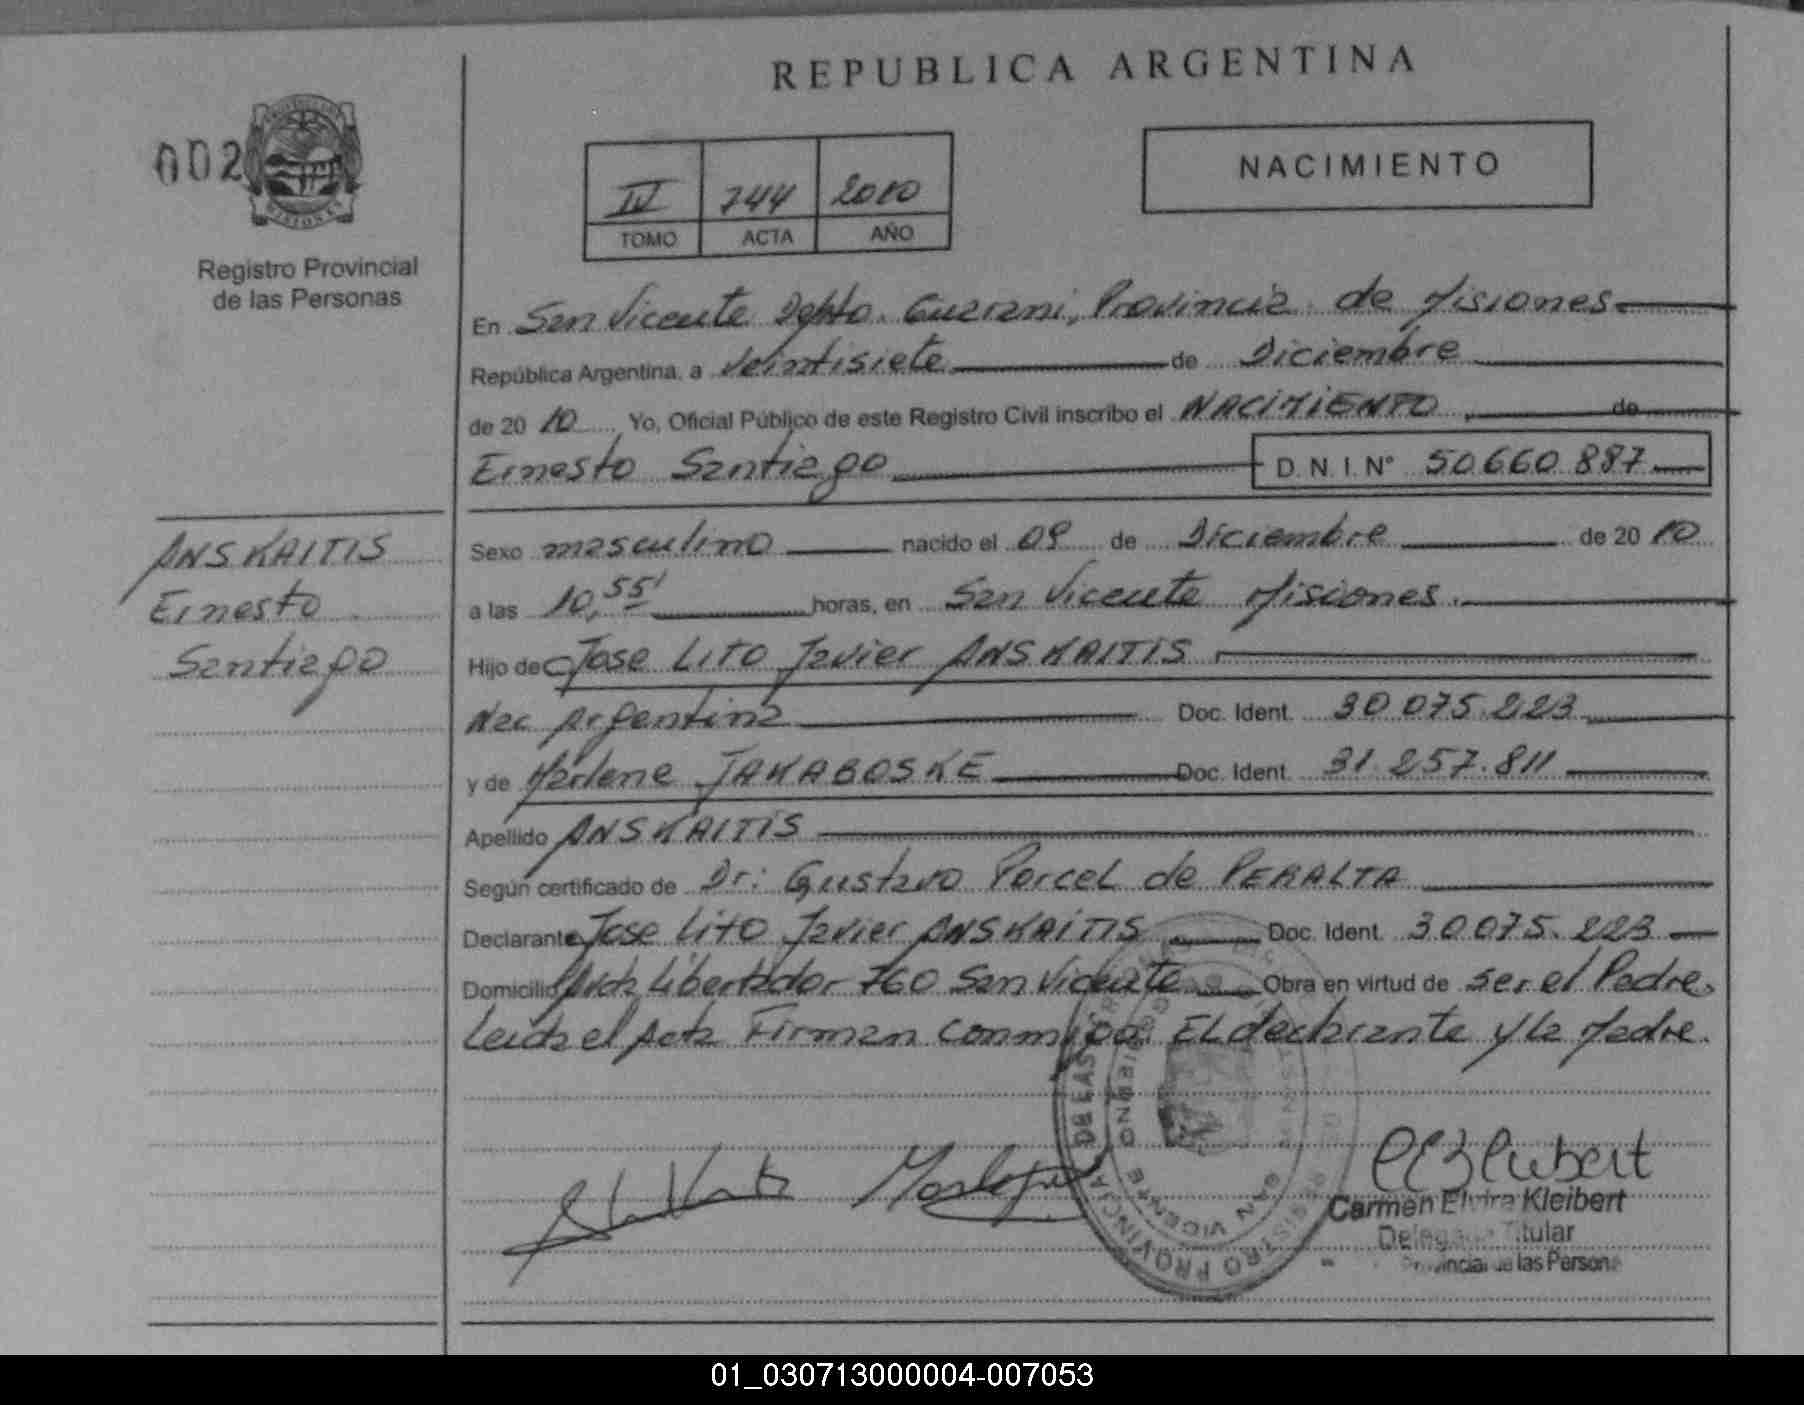 REPUBLICA ARGENTINA
002
MISIONES
Registro Provincial
de las Personas
IV 744 2010
TOMO ACTA AÑO
NACIMIENTO
En San Vicente Dpto. Guarani, Provincia de Misiones
República Argentina, a Veintisiete de Diciembre
de 2010 Yo, Oficial Público de este Registro Civil inscribo el NACIMIENTO de
Ernesto Santiago D.N.I.Nº 50.660.887
ANSKAITIS
Ernesto
Santiago
Sexo masculino nacido el 09 de Diciembre de 2010
a las 10,55' horas, en San Vicente Misiones.
Hijo de Jose LITO Javier ANSKAITIS
Nac Argentina Doc. Ident. 30.075.223
y de Marlene JAKABOSKE Doc. Ident. 31.257.811
Apellido ANSKAITIS
Según certificado de Dr: Gustavo Porcel de PERALTA
Declarante Jose Lito Javier ANSKAITIS Doc. Ident. 30.075.223
Domicilio Avda Libertador 760 San Vicente Obra en virtud de ser el Padre.
Leida el Acta Firman conmigo. El declarante y la Madre.
REGISTRO PROVINCIAL DE LAS
SAN VICENTE
Carmen Elvira Kleibert
Delegada Titular
Provincial de las Personas
01_030713000004-007053